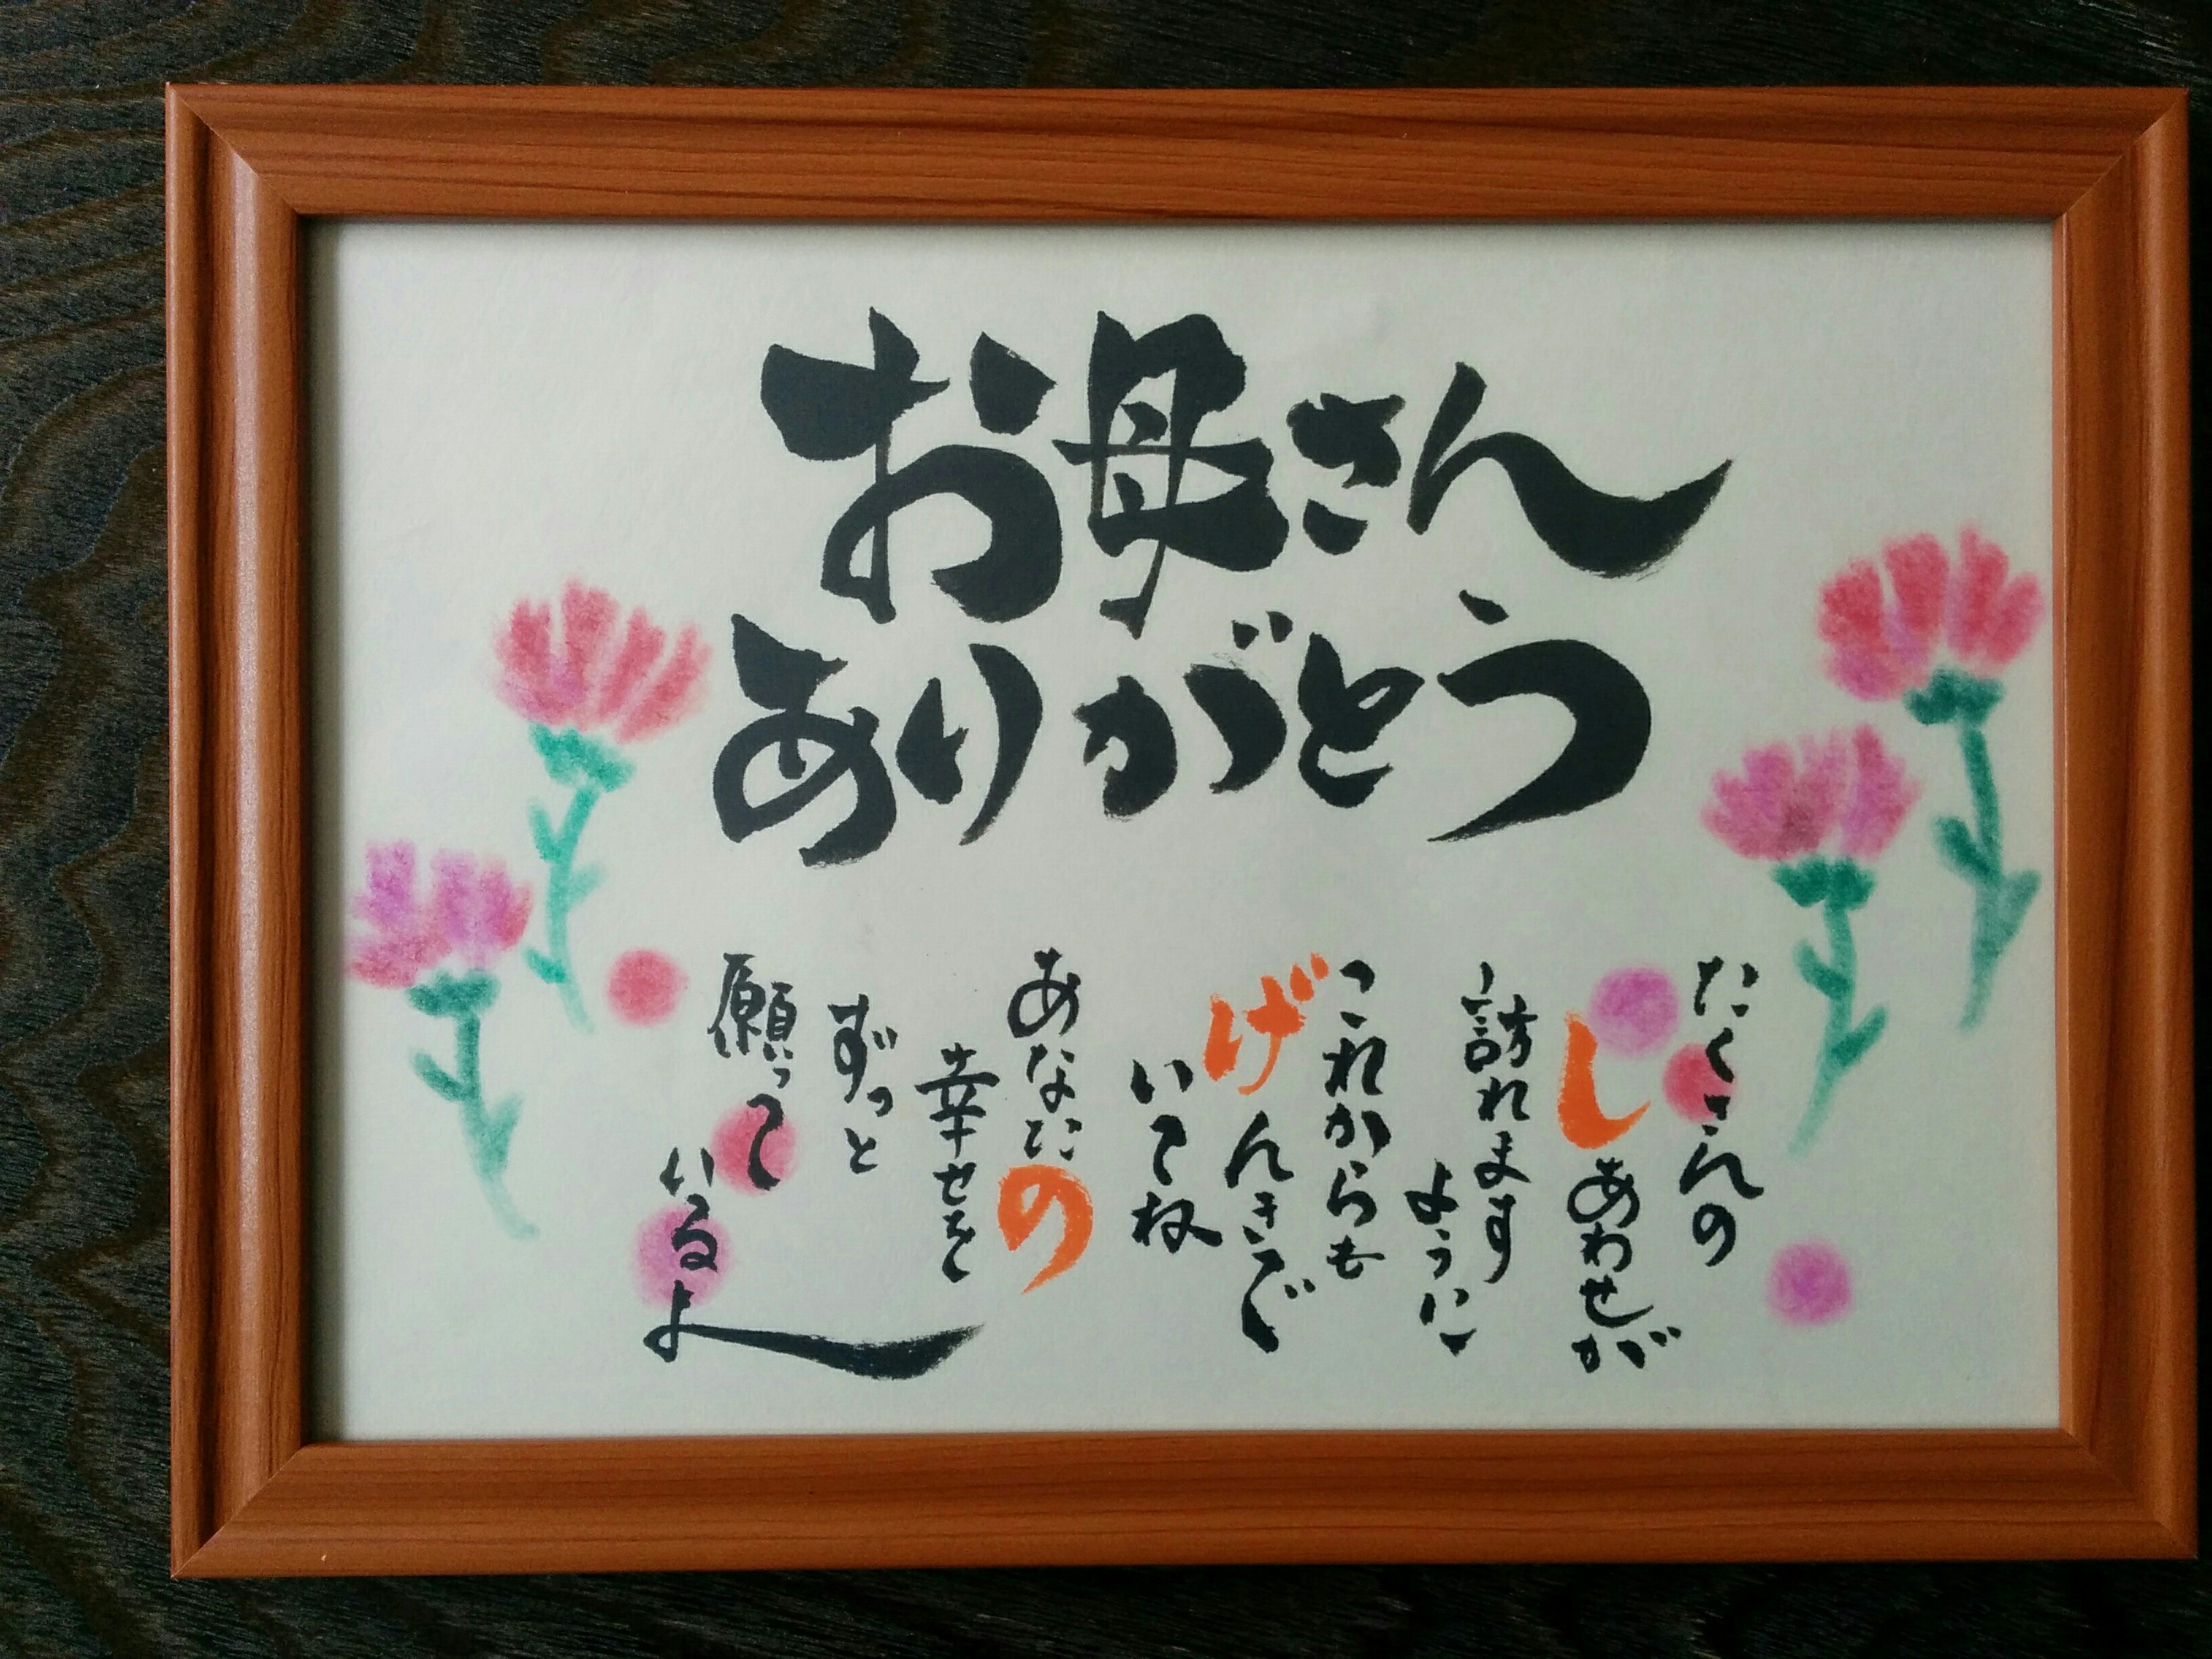 お母さん
ありがとう
たくさんの
しあわせが
訪れます
ように
これからも
げんきで
いてね
あなたの
幸せを
ずっと
願って
いるよ